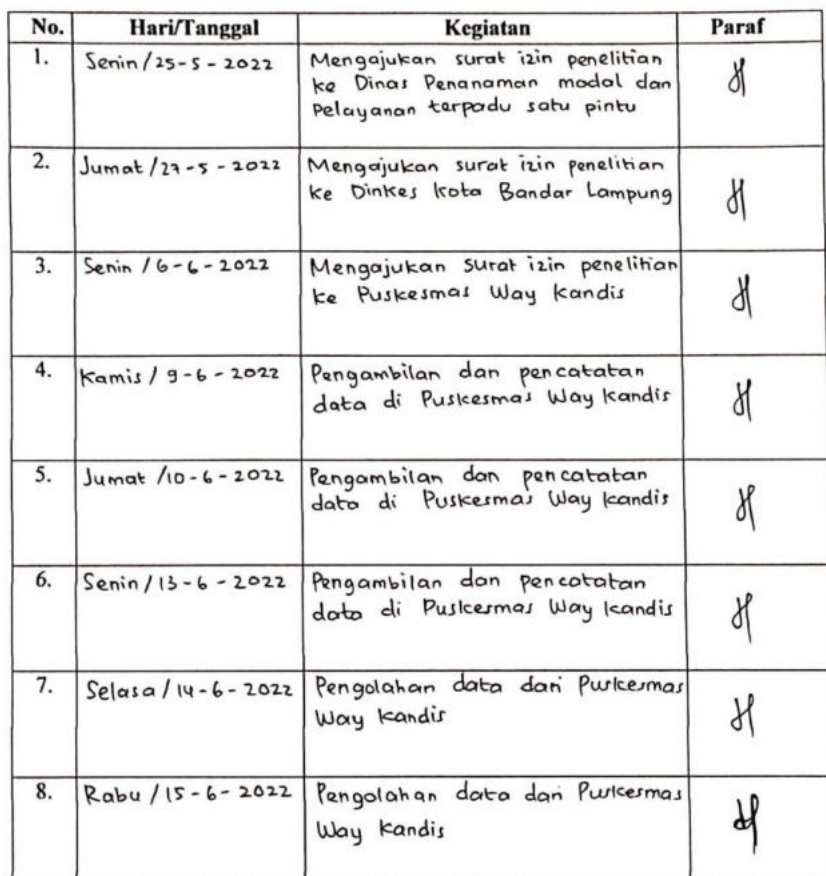 No. Hari/Tanggal Kegiatan Paraf
1. Senin / 25-5-2022 Mengajukan surat izin penelitian
ke Dinas Penanaman modal dan
Pelayanan terpadu satu pintu
2. Jumat / 27-5-2022 Mengajukan surat izin penelitian
ke Dinkes kota Bandar Lampung
3. Senin / 6-6-2022 Mengajukan surat izin penelitian
ke Puskesmas Way kandis
4. Kamis / 9-6-2022 Pengambilan dan pencatatan
data di Puskesmas Way kandis
5. Jumat / 10-6-2022 Pengambilan dan pencatatan
data di Puskesmas Way kandis
6. Senin / 13-6-2022 Pengambilan dan pencatatan
data di Puskesmas Way kandis
7. Selasa / 14-6-2022 Pengolahan data dari Puskesmas
Way kandis
8. Rabu / 15-6-2022 Pengolahan data dari Puskesmas
Way kandis